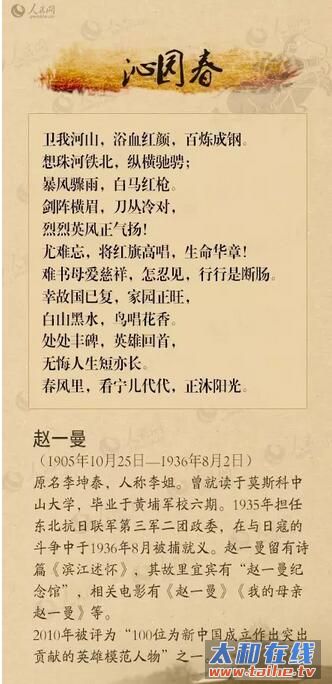 人民网
沁园春
卫我河山，浴血红颜，百炼成钢。
想珠河铁北，纵横驰骋；
暴风骤雨，白马红枪。
剑阵横眉，刀丛冷对，
烈烈英风正气扬！
尤难忘，将红旗高唱，生命华章！
难书母爱慈祥，怎忍见，行行是断肠。
幸故国已复，家园正旺，
白山黑水，鸟唱花香。
处处丰碑，英雄回首，
无悔人生短亦长。
春风里，看宁儿代代，正沐阳光。
赵一曼
（1905年10月25日—1936年8月2日）
原名李坤泰，人称李姐。曾就读于莫斯科中
山大学，毕业于黄埔军校六期。1935年担任
东北抗日联军第三军二团政委，在与日寇的
斗争中于1936年8月被捕就义。赵一曼留有诗
篇《滨江述怀》，其故里宜宾有“赵一曼纪
念馆”，相关电影有《赵一曼》《我的母亲
赵一曼》等。
2010年被评为“100位为新中国成立作出突出
贡献的英雄模范人物”之一
太和在线
www.taihe.tv